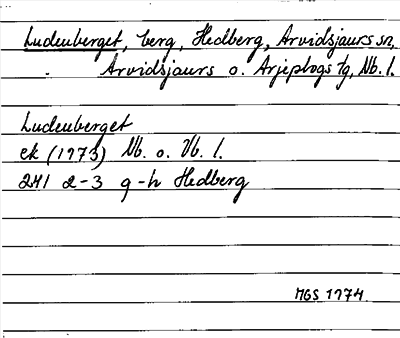 Ludenberget, berg, Hedberg, Arvidsjaurs sn,
Arvidsjaurs o. Arjeplogs tg, Nb. l.
Ludenberget
ek (1973) Nb. o. Vb. l.
24I 2-3 g-h Hedberg
MGS 1974